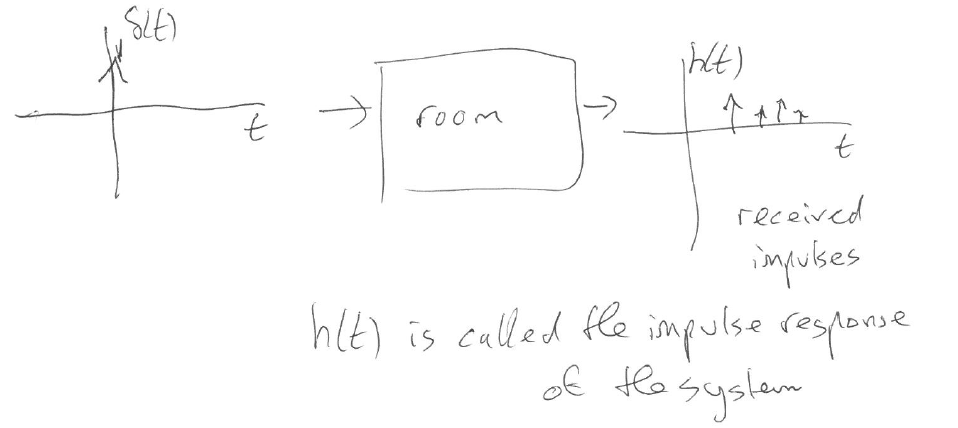 δ(t)
t
room
h(t)
t
received
impulses
h(t) is called the impulse response
of the system